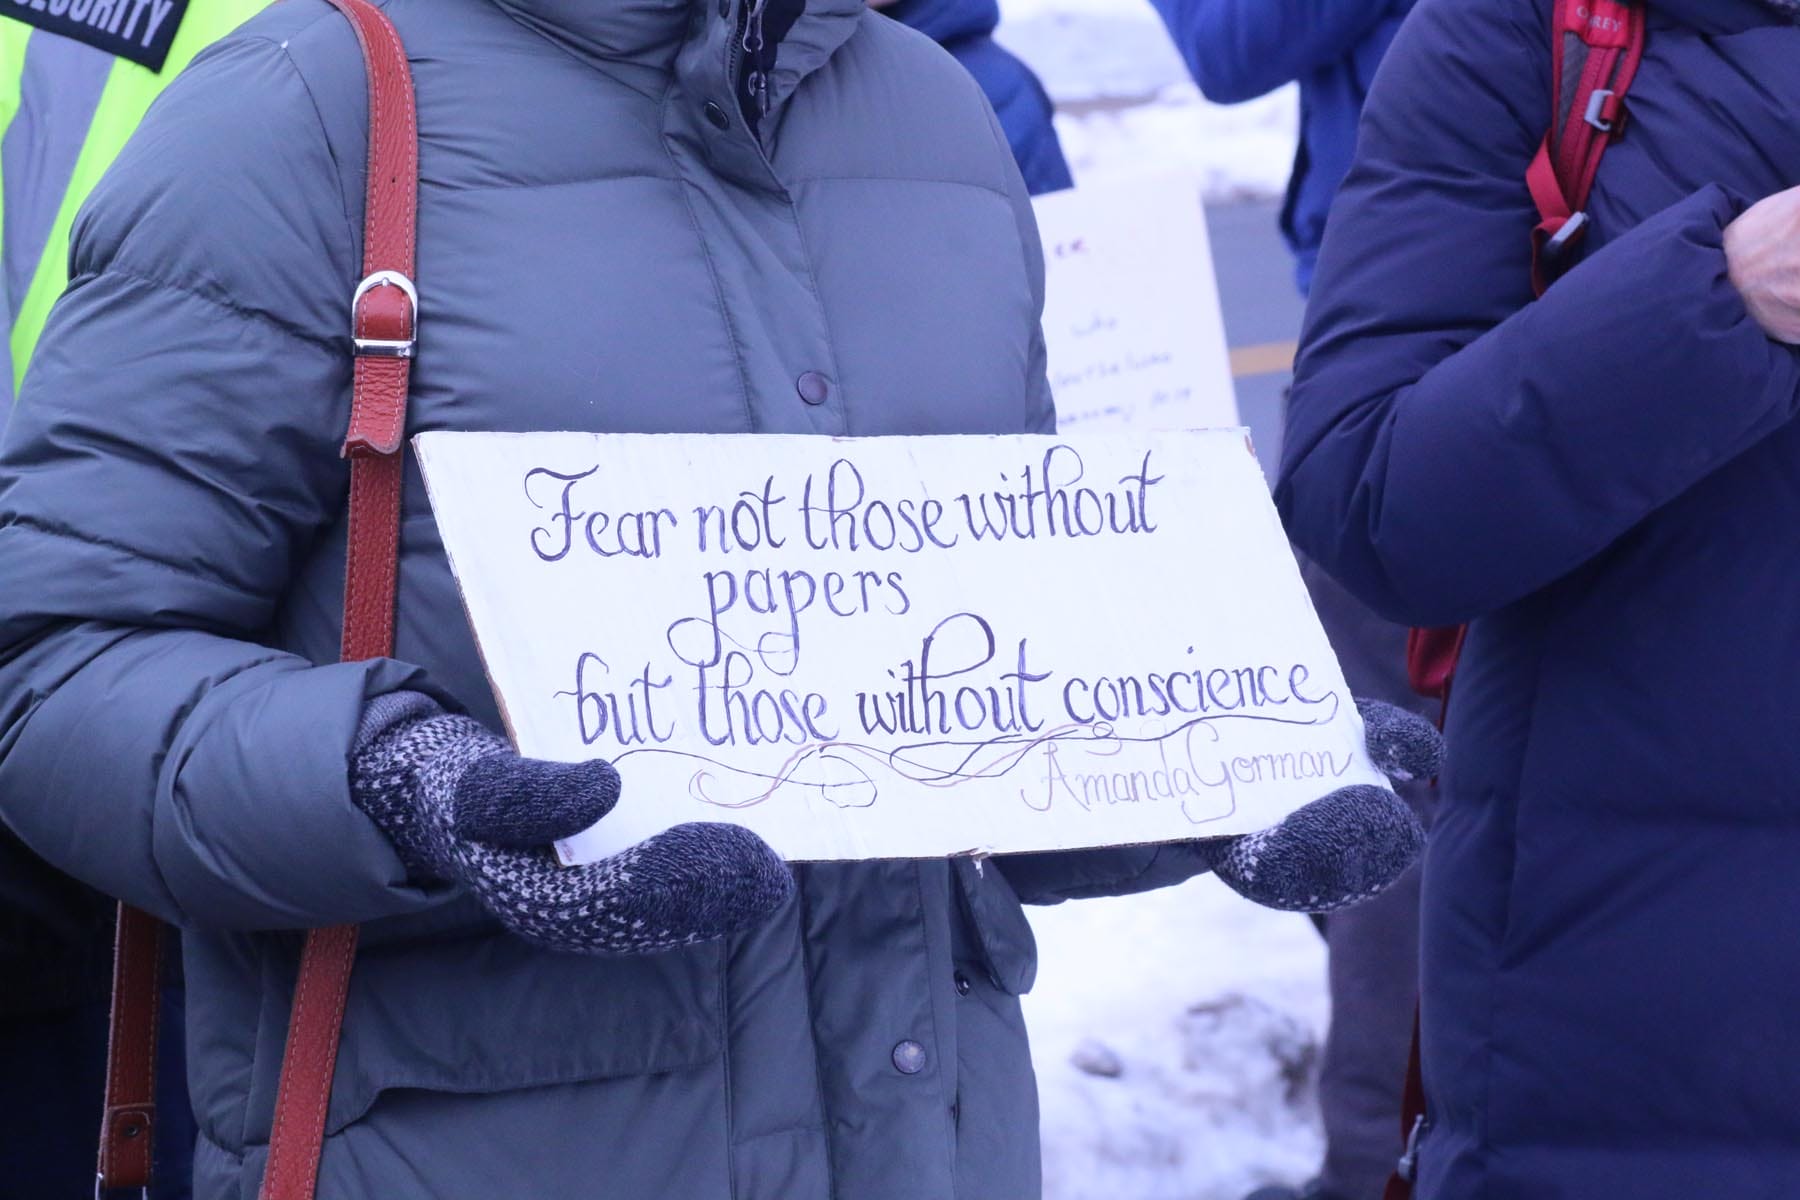 SECURITY
Fear not those without
papers
but those without conscience
Amanda Gorman
who